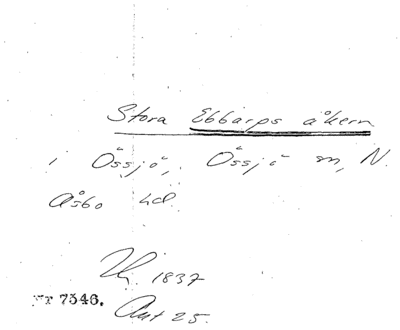 Stora Ebbarps åkern
i Össjö, Össjö sn, N.
Åsbo hd
1837
Nr 7546.
Akt 25.